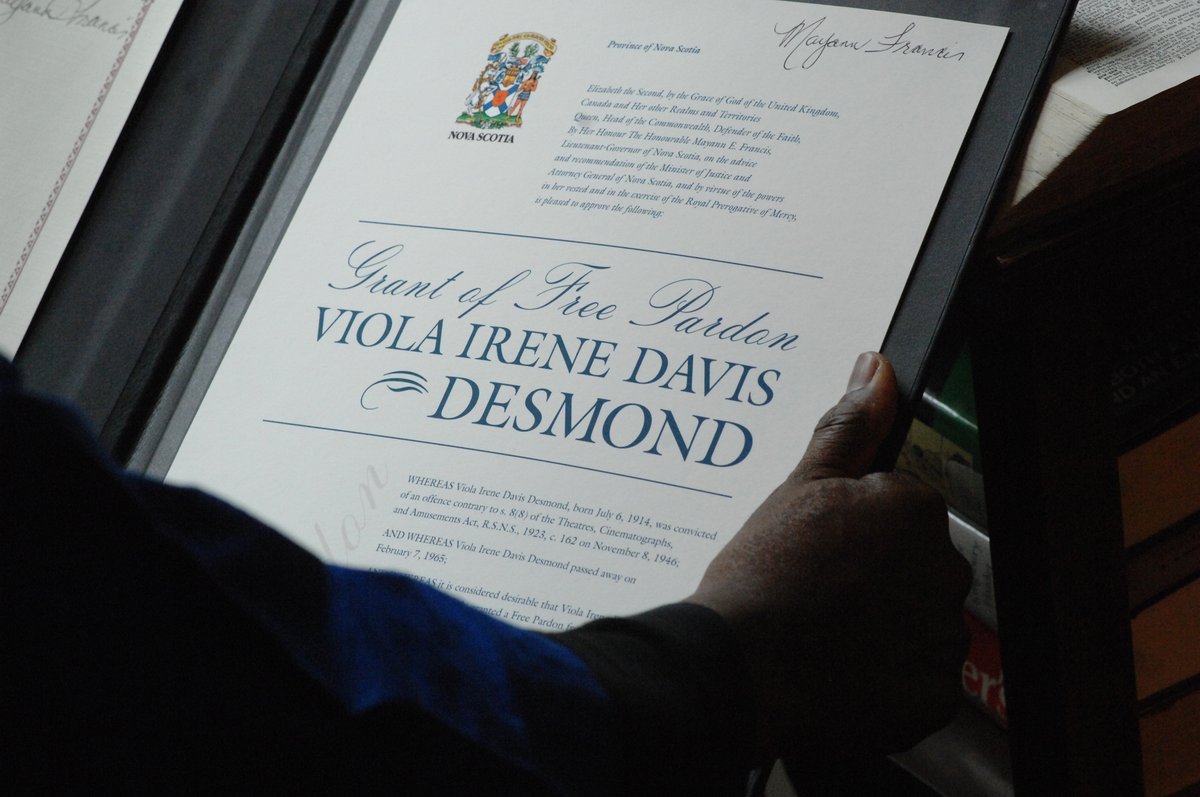 Mayann Francis
Province of Nova Scotia
NOVA SCOTIA
Elizabeth the Second, by the Grace of God of the United Kingdom,
Canada and Her other Realms and Territories
Queen, Head of the Commonwealth, Defender of the Faith,
By Her Honour The Honourable Mayann E. Francis,
Lieutenant-Governor of Nova Scotia, on the advice
and recommendation of the Minister of Justice and
Attorney General of Nova Scotia, and by virtue of the powers
in her vested and in the exercise of the Royal Prerogative of Mercy,
is pleased to approve the following:
Grant of Free Pardon
VIOLA IRENE DAVIS
DESMOND
WHEREAS Viola Irene Davis Desmond, born July 6, 1914, was convicted
of an offence contrary to s. 8(8) of the Theatres, Cinematographs,
and Amusements Act, R.S.N.S., 1923, c. 162 on November 8, 1946;
AND WHEREAS Viola Irene Davis Desmond passed away on
February 7, 1965;
it is considered desirable that Viola
a Free Pardon